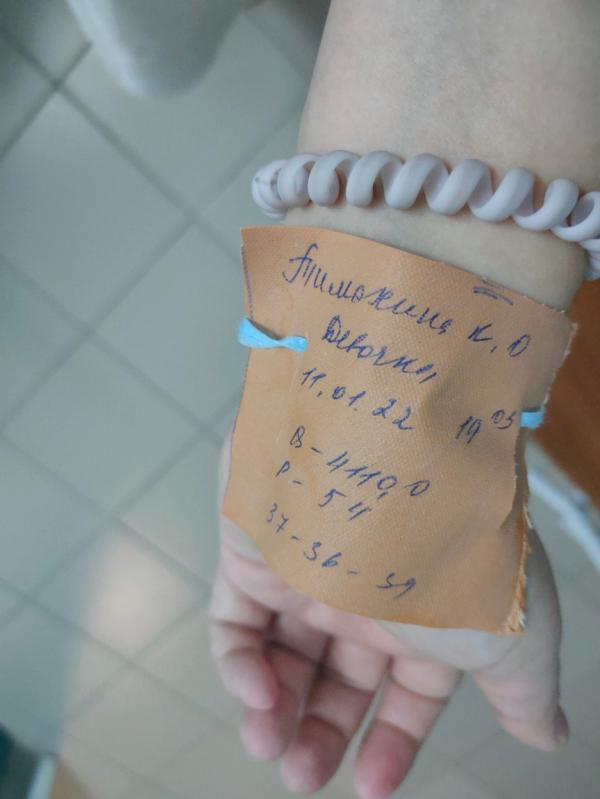 Тимохина К.О
Девочка
11.01.22 19 03
В - 4110,0
Р - 54
37 - 36 - 39